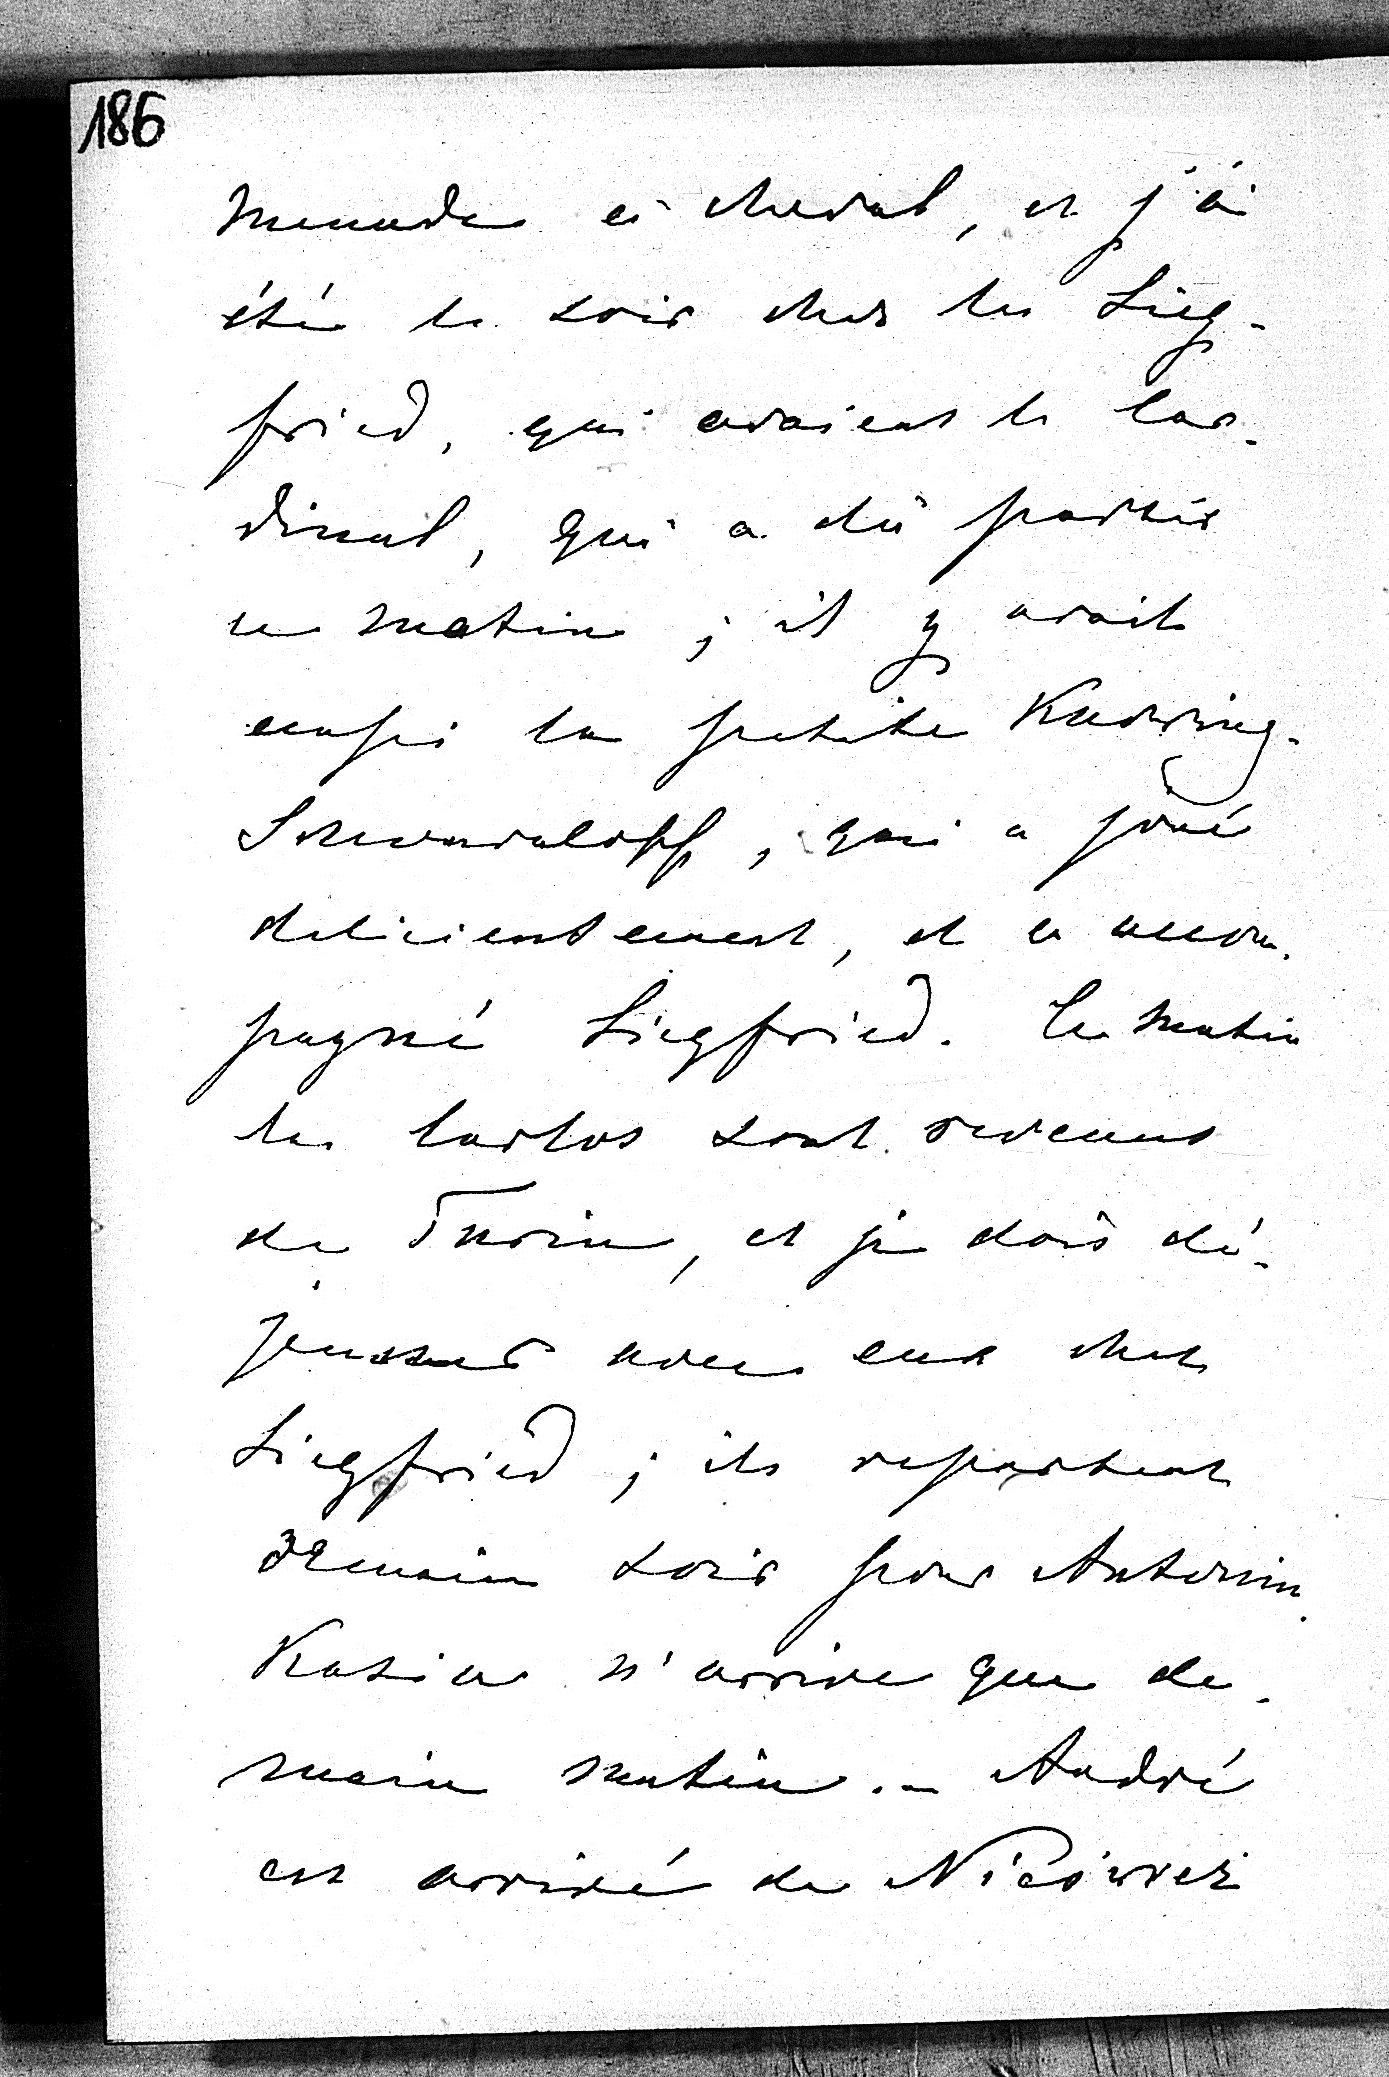 186
manade à cheval, et j'ai
été le soir chez les Sieg-
fried, qui avaient le Car-
dinal, qui a dû partir
ce matin ; il y avait
aussi la petite
qui a joué
delicieusement, et a accom-
pagné Siegfried. Ce matin
les Carlos sont revenus
de Turin, et je dois dé-
jeuner avec eux chez
Siegfried ; ils repartent
demain soir pour Antonin.
Katia n'arrive que de-
main matin. – André
est arrivé de Nieśwież